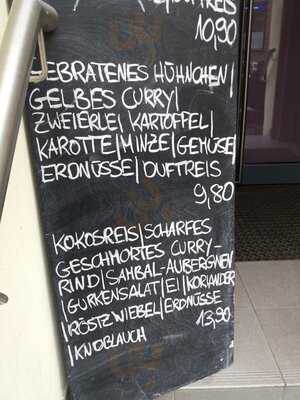 DUFTREIS
10,90
GEBRATENES HÜHNCHEN|
GELBES CURRY|
ZWEIERLEI KARTOFFEL|
KAROTTE|MINZE|GEMÜSE|
ERDNÜSSE|DUFTREIS
9,80
KOKOSREIS|SCHARFES
GESCHMORTES CURRY-
RIND|SAMBAL-AUBERGINEN
|GURKENSALAT|EI|KORIANDER
|RÖSTZWIEBEL|ERDNÜSSE
|KNOBLAUCH 13,90